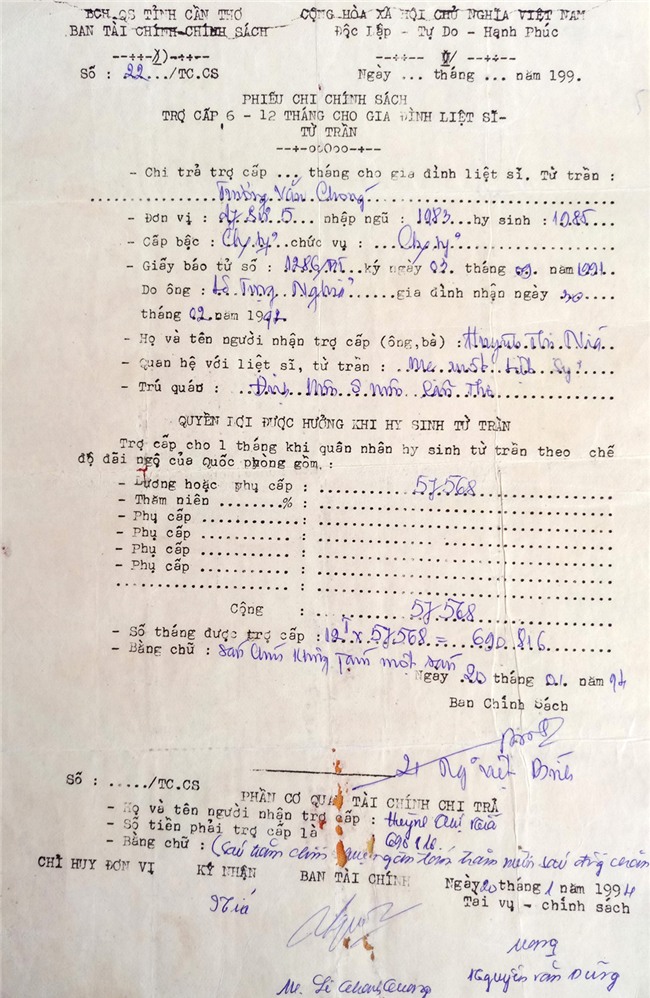 BCH QS TỈNH CẦN THƠ CỘNG HÒA XÃ HỘI CHỦ NGHĨA VIỆT NAM
BAN TÀI CHÍNH-CHÍNH SÁCH Độc Lập - Tự Do - Hạnh Phúc
Số : 22.../TC.CS Ngày ... tháng ... năm 199.
PHIẾU CHI CHÍNH SÁCH
TRỢ CẤP 6 - 12 THÁNG CHO GIA ĐÌNH LIỆT SĨ-
TỪ TRẦN
--+-ooOoo-+--
- Chi trả trợ cấp ... tháng cho gia đình liệt sĩ. Từ trần :
Trương Văn Chong
- Đơn vị : 5 nhập ngũ : 1983 hy sinh : 1985
- Cấp bậc : chức vụ :
- Giấy báo tử số : 1286 ký ngày 03. tháng 09. năm 1991
Do ông : Lê Trọng Nghĩa gia đình nhận ngày 20
tháng 02 năm 1992
- Họ và tên người nhận trợ cấp (ông,bà) : Huỳnh Thị Niá
- Quan hệ với liệt sĩ, từ trần : Mẹ ruột liệt sỹ
- Trú quán : Môn Ô Môn Cần Thơ
QUYỀN LỢI ĐƯỢC HƯỞNG KHI HY SINH TỪ TRẦN
Trợ cấp cho 1 tháng khi quân nhân hy sinh từ trần theo chế
độ đãi ngộ của Quốc phòng gồm :
- Lương hoặc phụ cấp : 57.568
- Thăm niên ........% :
- Phụ cấp ............ :
- Phụ cấp ............ :
- Phụ cấp ............ :
- Phụ cấp ............ :
Cộng : 57.568
- Số tháng được trợ cấp : 12T x 57.568 = 690.816
- Bằng chữ : Sáu chín không tám một sáu
Ngày 20 tháng 01. năm 94
Ban Chính Sách
Ng Việt Bình
Số : ...../TC.CS
PHẦN CƠ QUAN TÀI CHÍNH CHI TRẢ
- Họ và tên người nhận trợ cấp : Huỳnh Thị Niá
- Số tiền phải trợ cấp là 690.816
- Bằng chữ : (Sáu trăm chín mươi ngàn tám trăm mười sáu đồng chẵn
CHỈ HUY ĐƠN VỊ KÝ NHẬN BAN TÀI CHÍNH Ngày 20 tháng 1 năm 1994
Tài vụ - chính sách
Niá
Nguyễn Văn Dũng